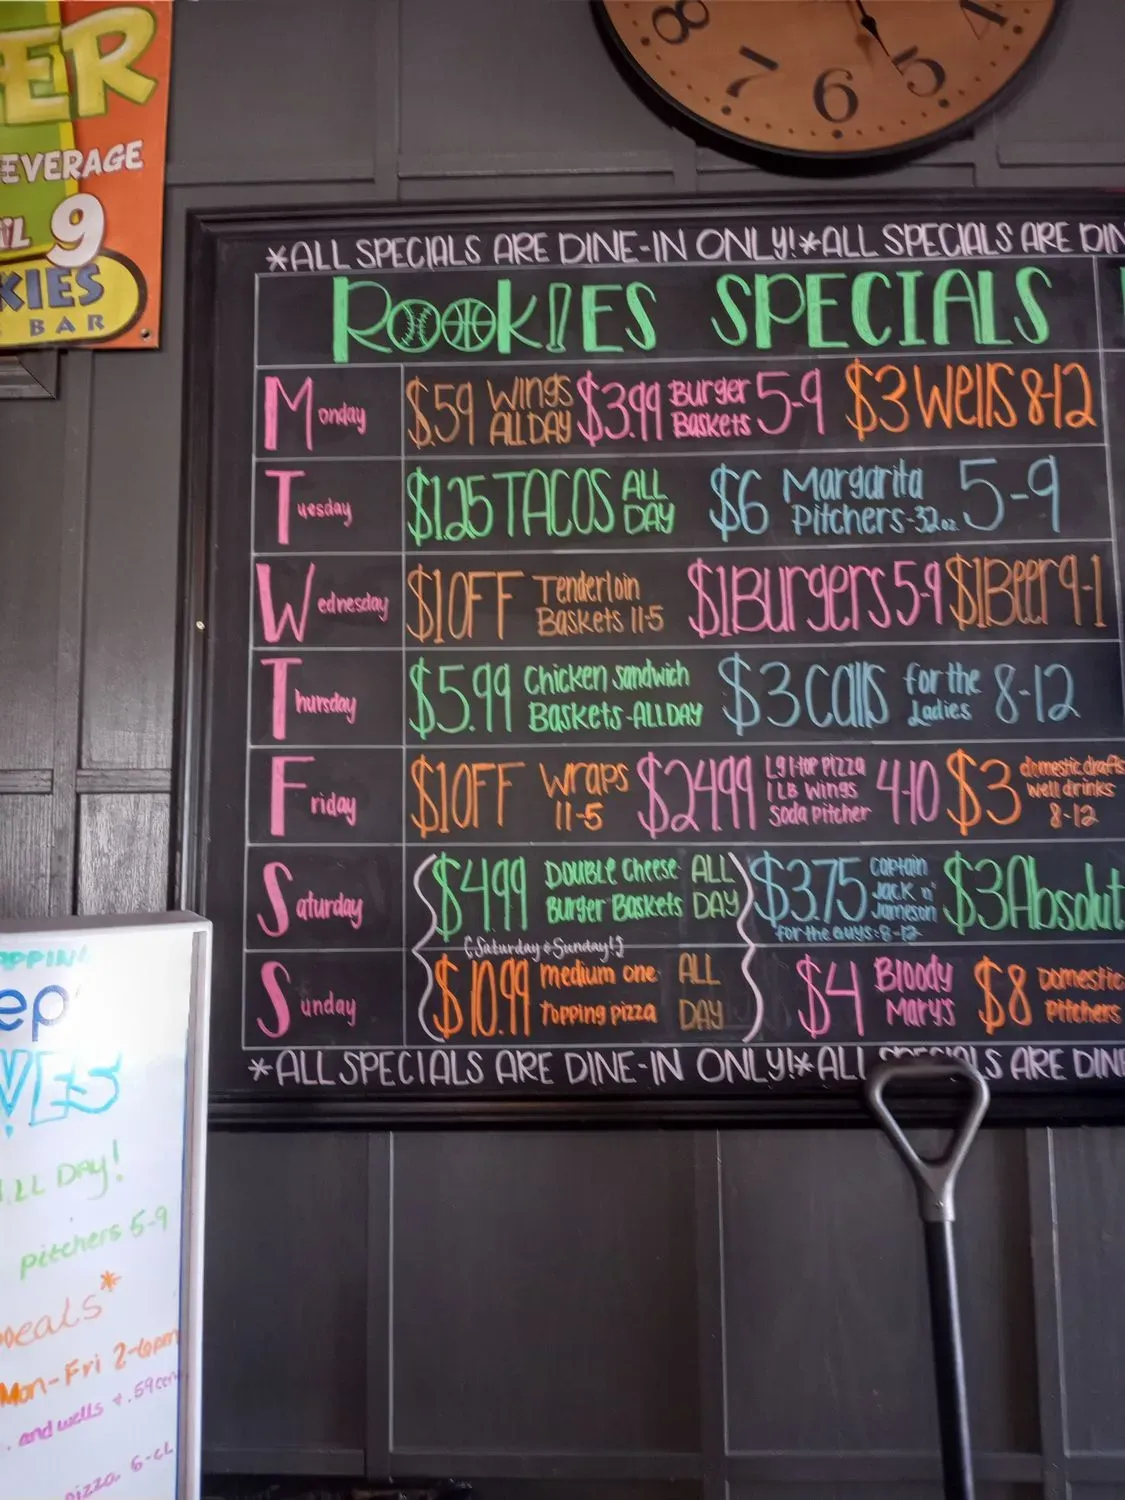 ER
EVERAGE
IL 9
KIES
BAR
8 7 6 5 4
*ALL SPECIALS ARE DINE-IN ONLY!*ALL SPECIALS ARE DIN
ROOKIES SPECIALS
Monday $.59 WINGS ALL DAY $3.99 Burger Baskets 5-9 $3 Wells 8-12
Tuesday $1.25 TACOS ALL DAY $6 Margarita Pitchers-32oz. 5-9
Wednesday $1 OFF Tenderloin Baskets 11-5 $1 Burgers 5-9 $1 Beer 9-1
Thursday $5.99 Chicken Sandwich Baskets-ALL DAY $3 Calls for the Ladies 8-12
Friday $1 OFF Wraps 11-5 $24.99 Lg 1-top pizza 1 LB Wings Soda Pitcher 4-10 $3 domestic drafts well drinks 8-12
Saturday $4.99 Double Cheese Burger Baskets ALL DAY $3.75 Captain Jack n' Jameson for the guys: 8-12 $3 Absolut
(Saturday & Sunday!)
Sunday $10.99 medium one topping pizza ALL DAY $4 Bloody Mary's $8 Domestic Pitchers
*ALL SPECIALS ARE DINE-IN ONLY!*ALL SPECIALS ARE DINE
OPPING
ep
VES
ALL DAY!
pitchers 5-9
Deals*
Mon-Fri 2-6pm
and wells & .59cen
pizza 6-cl